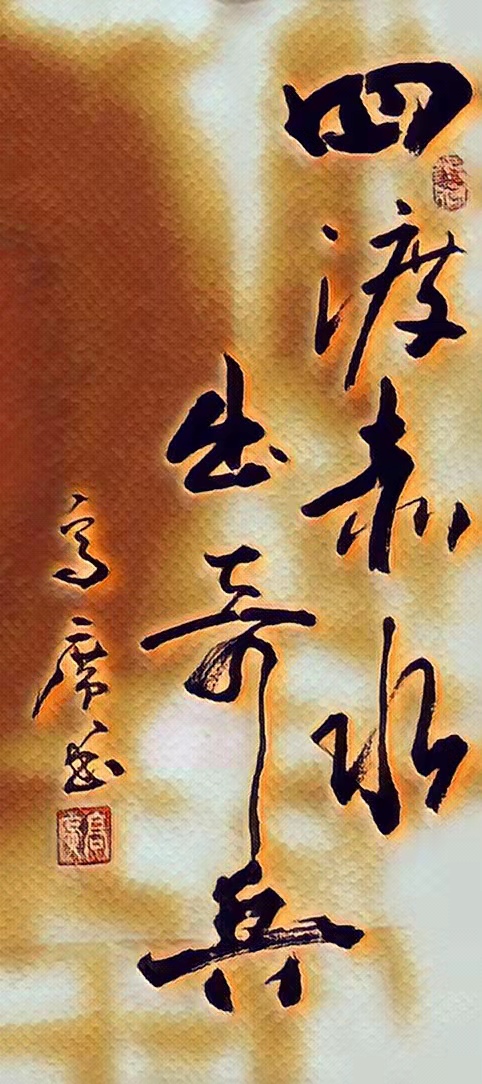 四渡赤水
出奇兵
高席书